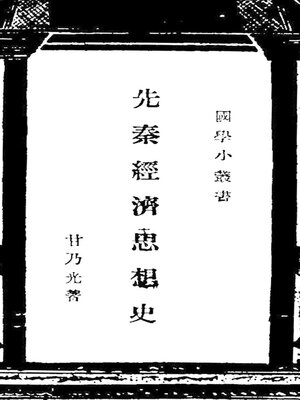 國學小叢書
先秦經濟思想史
甘乃光著